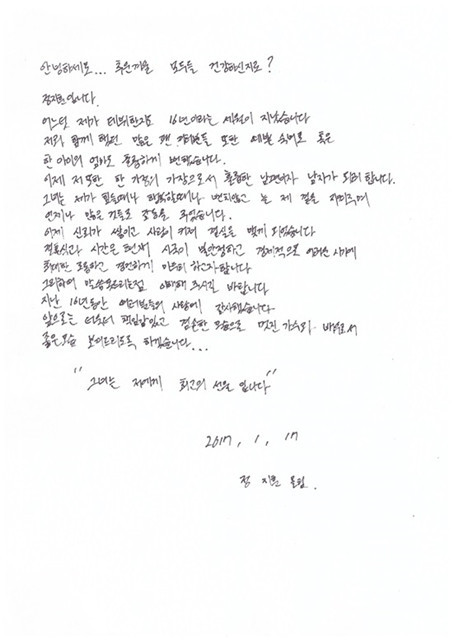 안녕하세요... 추운겨울 모두들 건강하신지요?
정지훈입니다.
어느덧 제가 데뷔한지도 16년이라는 세월이 지났습니다
저와 함께 했던 많은 팬 여러분들 또한 세월 속에로 혹은
한 아이의 엄마로 훌륭하게 변했습니다.
이제 저 또한 한 가정의 가장으로서 훌륭한 남편이자 남자가 되려 합니다.
그녀는 제가 힘들때나 행복할때나 변치않고 늘 제 곁을 지켜주며
언제나 많은 것들로 감동을 주었습니다.
이제 신뢰가 쌓이고 사랑이 커져 결실을 맺게 되었습니다
결혼식과 시간은 현재 시국이 불안정하고 경제적으로 어려운 시기에
최대한 조용하고 경건하게 치르려 하고자합니다
그리하여 말씀못드리는점 이해해 주시길 바랍니다
지난 16년동안 여러분들의 사랑에 감사했습니다
앞으로는 더욱더 책임감있고 겸손한 모습으로 멋진 가수와 배우로서
좋은모습 보여드리도록 하겠습니다...
"그녀는 저에게 최고의 선물 입니다"
2017, 1, 17
정 지훈 올림.